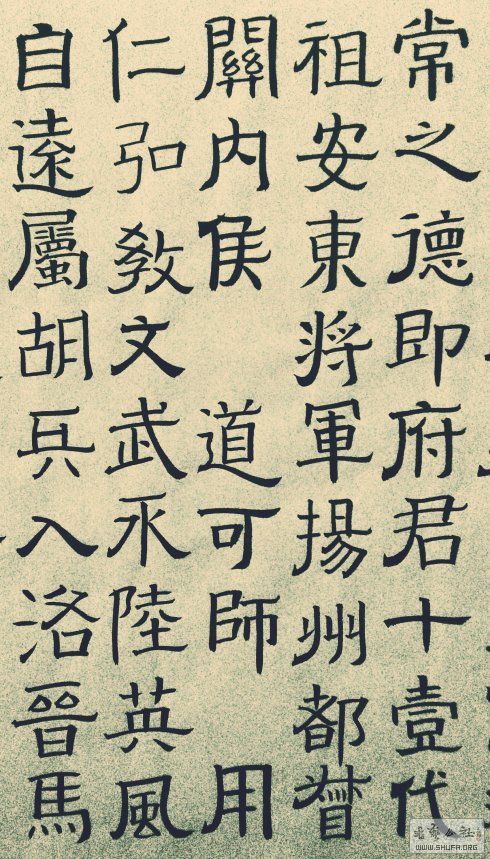 常之德即府君十壹代
祖安東將軍揚州都督
關內侯 道可師 用
仁弘教文武永陸英風
自遠屬胡兵入洛晉馬
WWW.SHUFA.ORG